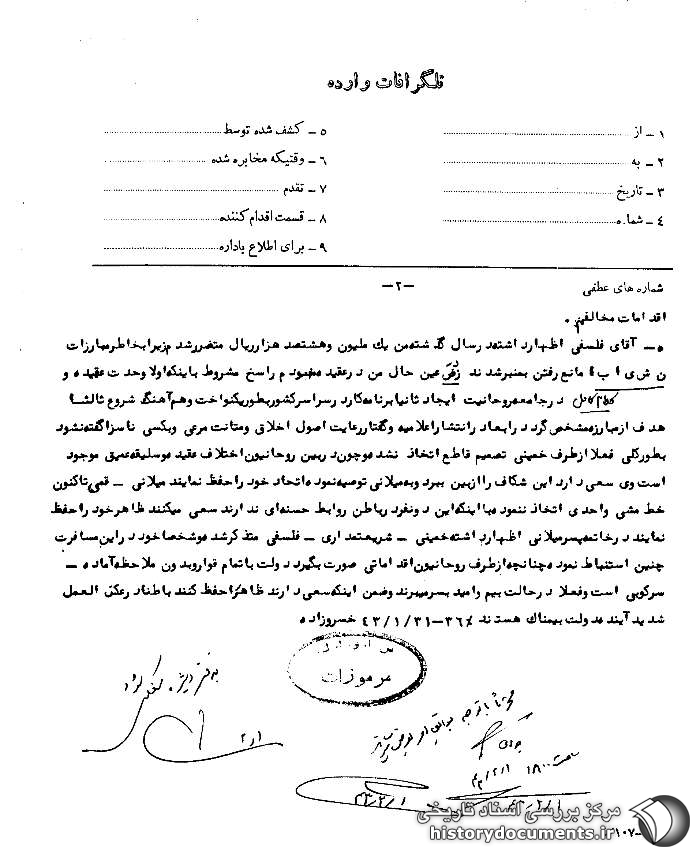 تلگرافات وارده
۱ ـ از
۲ ـ به
۳ ـ تاریخ
۴ ـ شماره
۵ ـ کشف شده توسط
۶ ـ وقتیکه مخابره شده
۷ ـ تقدم
۸ ـ قسمت اقدام کننده
۹ ـ برای اطلاع باداره
شماره های عطفی
ـ۲ـ
اقدامات مخالفین .
۵ـ آقای فلسفی اظهارداشته درسال گذشته من یك ملیون وهشتصد هزارریال متضررشدم زیرابخاطرمبارزات
مانع رفتن بمنبرشدند عین حال من درعقیده خودم راسخ مشروط باینکه اولا وحدت عقیده و
درجامعه روحانیت ایجاد ثانیا برنامه کاردرسراسرکشوربطوریکنواخت وهم آهنگ شروع ثالثا
هدف ازمبارزه مشخص گردد رابعا درانتشاراعلامیه وگفتاررعایت اصول اخلاق ومتانت مرعی وبکسی ناسزاگفته نشود
بطورکلی فعلا ازطرف خمینی تصمیم قاطع اتخاذ نشده وچون دربین روحانیون اختلاف عقیده وسلیقه عمیق موجود
است وی سعی دارد این شکاف را ازبین ببرد وبه میلانی توصیه نموده اتحاد خود را حفظ نمایند میلانی ـ قمی تاکنون
خط مشی واحدی اتخاذ ننموده بااینکه این دونفرد رباطن روابط حسنه ای ندارند سعی میکنند ظاهرخودراحفظ
نمایند درخاتمه پسرمیلانی اظهارداشته خمینی ـ شریعتمداری ـ فلسفی متذکرشده وشخصا خود دراین مسافرت
چنین استنباط نموده چنانچه ازطرف روحانیون اقداماتی صورت بگیرد دولت باتمام قواوبدون ملاحظه آماده ـ
سرکوبی است وفعلا درحالت بیم وامید بسرمیبرند وضمن اینکه سعی دارند ظاهراحفظ کنند باطنا درعکس العمل
شدیدآینده دولت بیمناك هستند ۳۶۸ـ۴۳/۱/۳۱ خسروزاده
مرموزات
۲/۱
۱۸۰۰
۴۳/۲/۱
۴۳/۲/۱
مرکز بررسی اسناد تاریخی
historydocuments.ir